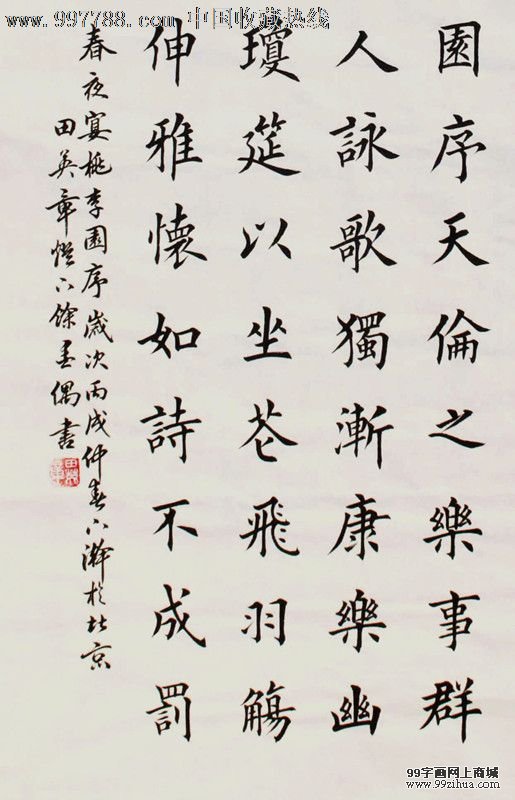 www.997788.com 中国收藏热线
園序天倫之樂事群
人詠歌獨漸康樂幽
瓊筵以坐花飛羽觴
伸雅懷如詩不成罰
春夜宴桃李園序歲次丙戌仲春下澣於北京
田英章燈下餘墨偶書
99字画网上商城
www.99zihua.com